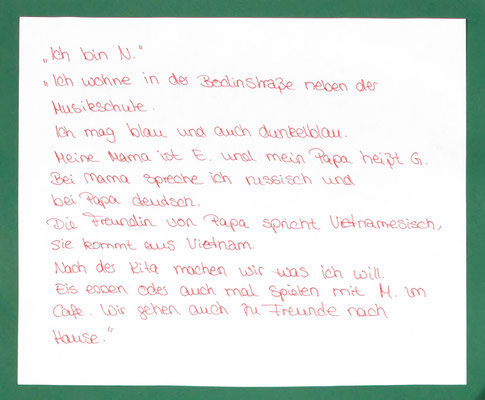 „Ich bin N."
„Ich wohne in der Bodinstraße neben der
Musikschule.
Ich mag blau und auch dunkelblau.
Meine Mama ist E. und mein Papa heißt G.
Bei Mama spreche ich russisch und
bei Papa deutsch.
Die Freundin von Papa spricht Vietnamesisch,
sie kommt aus Vietnam.
Nach der Kita machen wir was ich will.
Eis essen oder auch mal Spielen mit M. im
Cafe. Wir gehen auch zu Freunde nach
Hause."